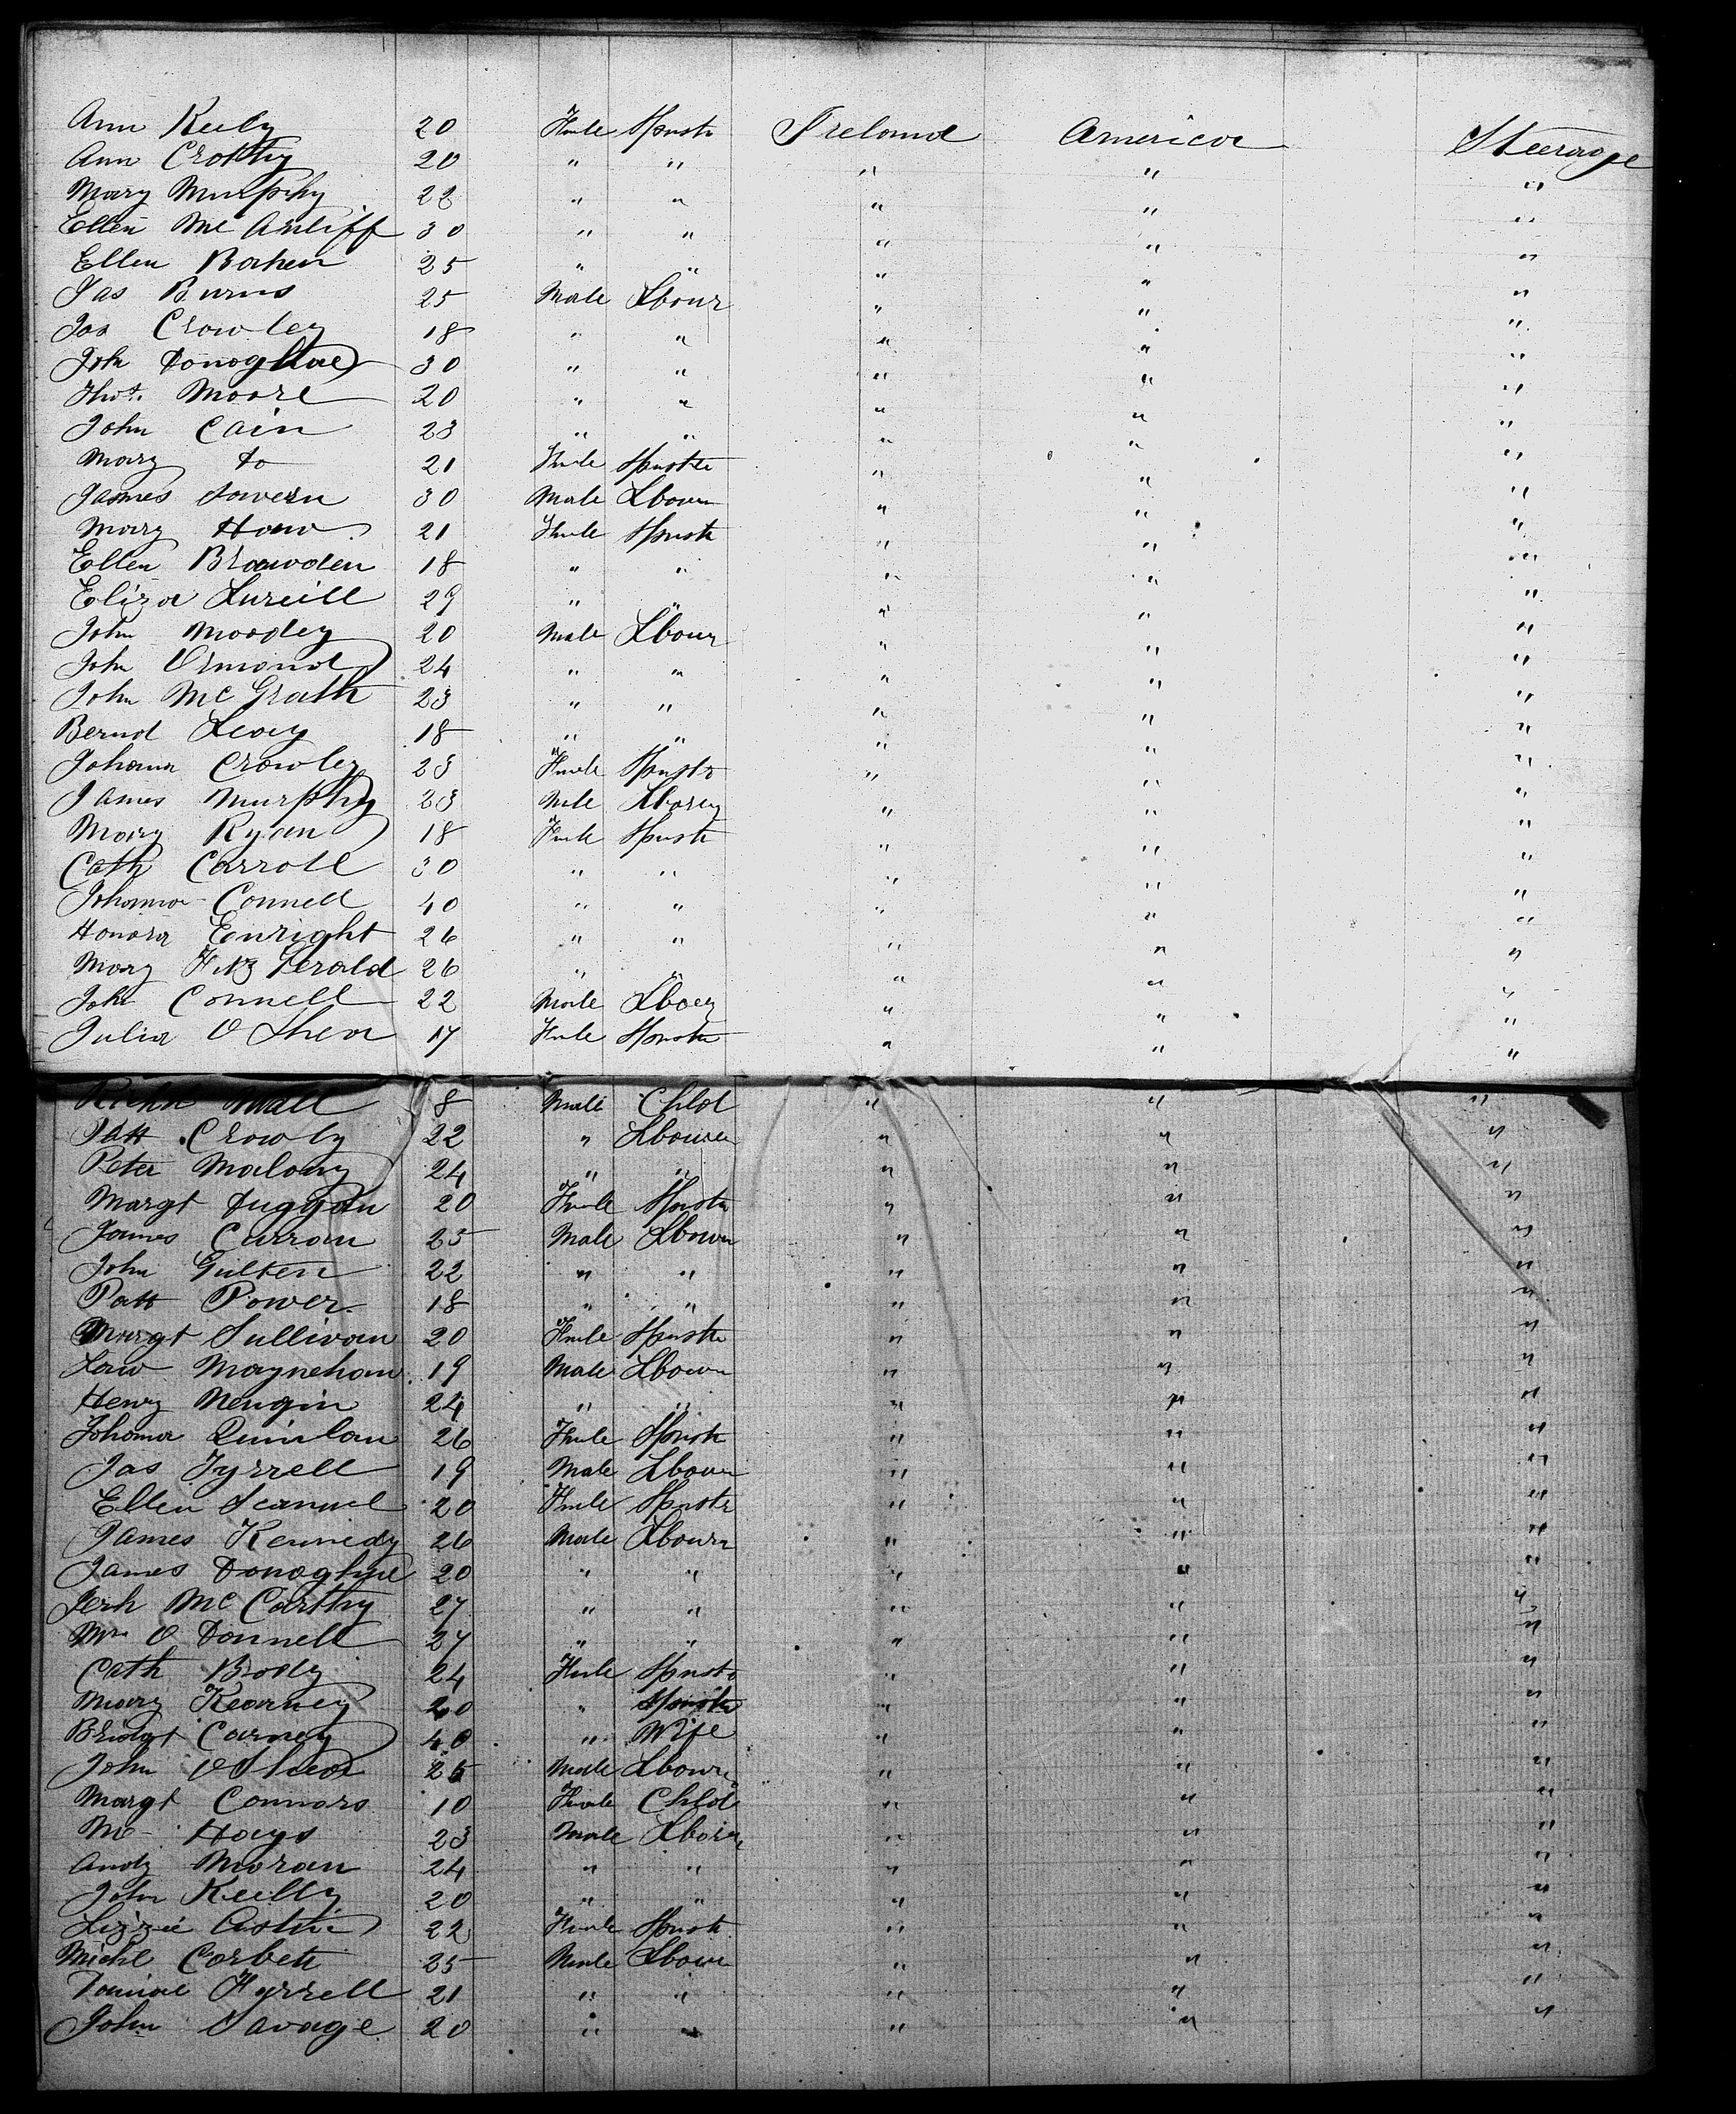 Ann Reily 20 Fmle Spnstr Ireland America Steerage
Ann Crotty 20 " " " " "
Mary Murphy 22 " " " " "
Ellen Mc Auliff 30 " " " " "
Ellen Bahen 25 " " " " "
Jas Burns 25 Male Lbour " " "
Jas Crowley 18 " " " " "
Joh Donoghue 30 " " " " "
Thos. Moore 20 " " " " "
John Cain 23 " " " " "
Mary do 21 Fmle Spnstr " " "
James 30 Male Lbour " " "
Mary Haw 21 Fmle Spnstr " " "
Ellen Browden 18 " " " " "
Eliza 29 " " " " "
John Moodey 20 Male Lbour " " "
John Ormond 24 " " " " "
John Mc Grath 23 " " " " "
Bernd Levy 18 " " " " "
Johana Crowley 23 Fmle Spnstr " " "
James Murphy 23 Mle Lborer " " "
Mary Ryan 18 Fmle Spnstr " " "
Cath Carroll 30 " " " " "
Johanna Connell 40 " " " " "
Honora Enright 26 " " " " "
Mary Fitz Gerald 26 " " " " "
John Connell 22 Male Lboer " " "
Julia O Shea 17 Fmle Spnstr " " "
Richd Wall 8 Male Chld " " "
Patt Crowly 22 " Lbourer " " "
Peter Malony 24 " " " " "
Margt Duggan 20 Fmle Spnstr " " "
James Curran 25 Male Lbour " " "
John Gulten 22 " " " " "
Patt Power 18 " " " " "
Margt Sullivan 20 Fmle Spnstr " " "
Law Maynehan 19 Male Lbour " " "
Henry Neugin 24 " " " " "
Johanna Quinlan 26 Fmle Spnstr " " "
Jas Tyrrell 19 Male Lbour " " "
Ellen Scannel 20 Fmle Spnstr " " "
James Kennedy 26 Male Lbour " " "
James Donoghue 20 " " " " "
Jerh Mc Carthy 27 " " " " "
Wm O Donnell 27 " " " " "
Cath Brody 24 Fmle Spnstr " " "
Mary Kearney 20 " Spnstr " " "
Bridgt Carney 40 " Wife " " "
John O Shea 25 Male Lbour " " "
Margt Connors 10 Fmle Chld " " "
Hays 23 Male Lborer " " "
Andy Moran 24 " " " " "
John Reilly 20 " " " " "
Lizzie 22 Fmle Spnstr " " "
Michl Corbett 25 Male Lbour " " "
Daniel Tyrrell 21 " " " " "
John Savage 20 " " " " "